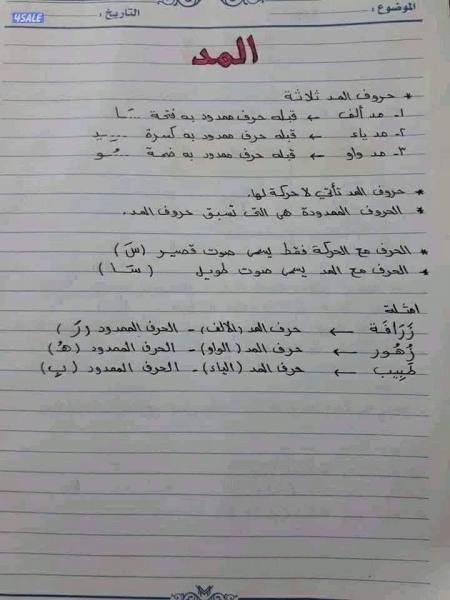 4SALE
الموضوع :
التاريخ :
المد
* حروف المد ثلاثة
١- مد ألف ← قبله حرف ممدود به فتحة ـَـا
٢- مد ياء ← قبله حرف ممدود به كسرة
٣- مد واو ← قبله حرف ممدود به ضمة
* حروف المد تأتي لا حركة لها.
* الحروف الممدودة هى التى تسبق حروف المد.
* الحرف مع الحركة فقط يسمى صوت قصير (سَ)
* الحرف مع المد يسمى صوت طويل (سَا)
امثلة
زَرَافَة ← حرف المد (الالف) - الحرف الممدود (رَ)
زُهُور ← حرف المد (الواو) - الحرف الممدود (هُ)
طَبِيب ← حرف المد (الياء) - الحرف الممدود (بِ)